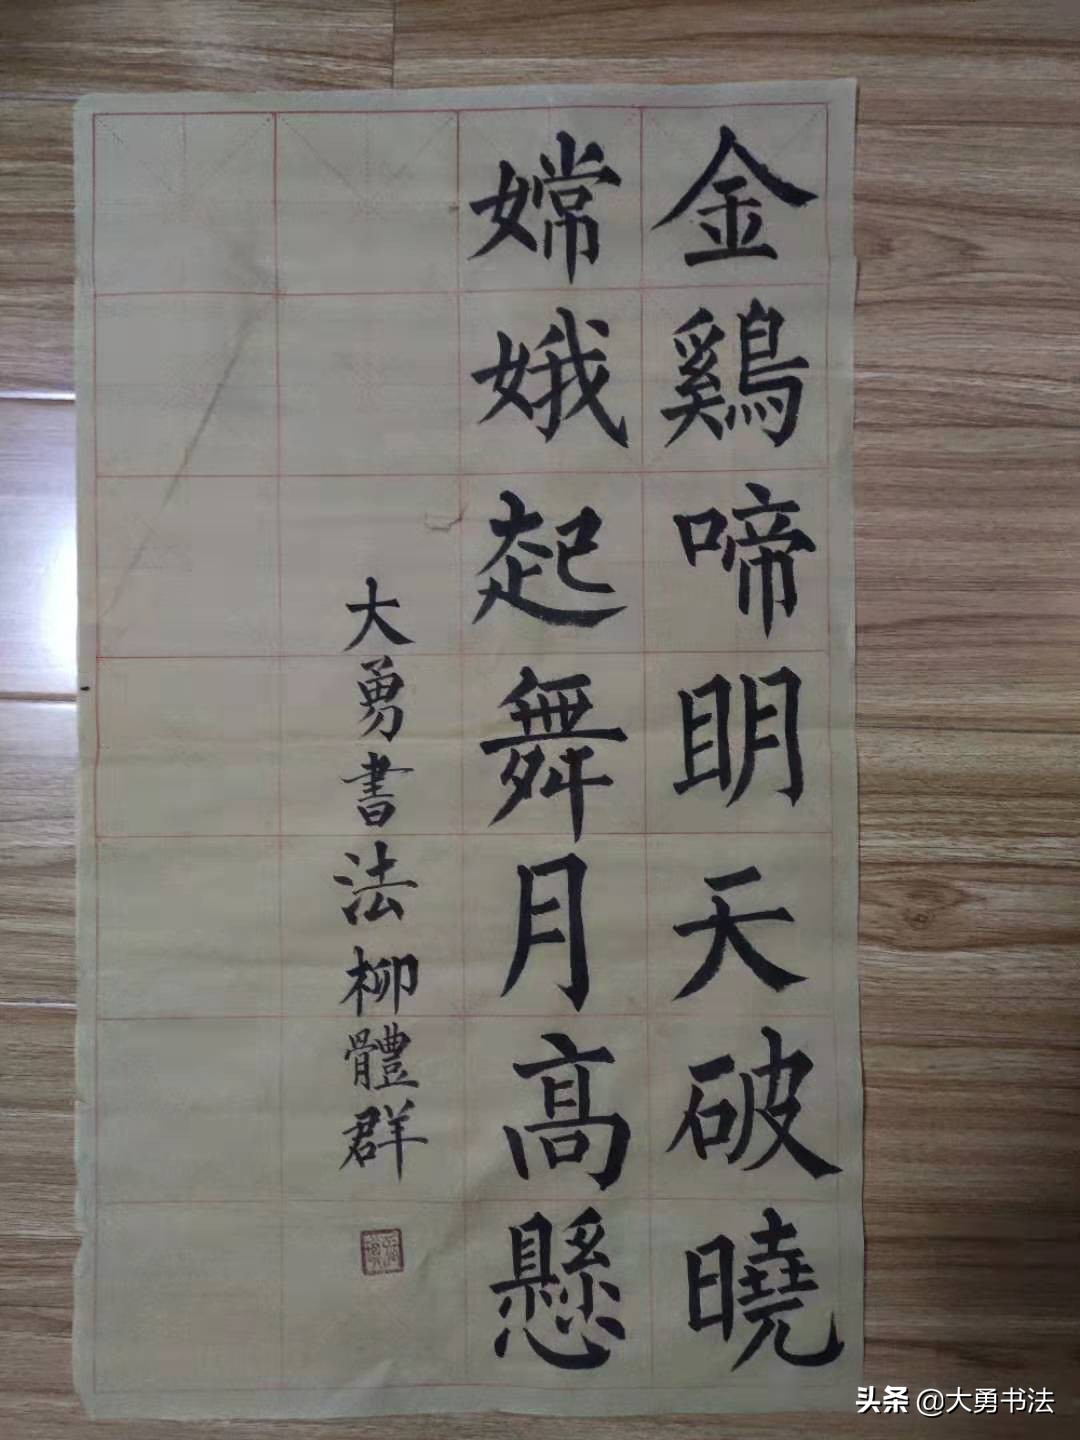 金鷄啼眀天破曉
嫦娥起舞月高懸
大勇書法柳體群
头条 @大勇书法